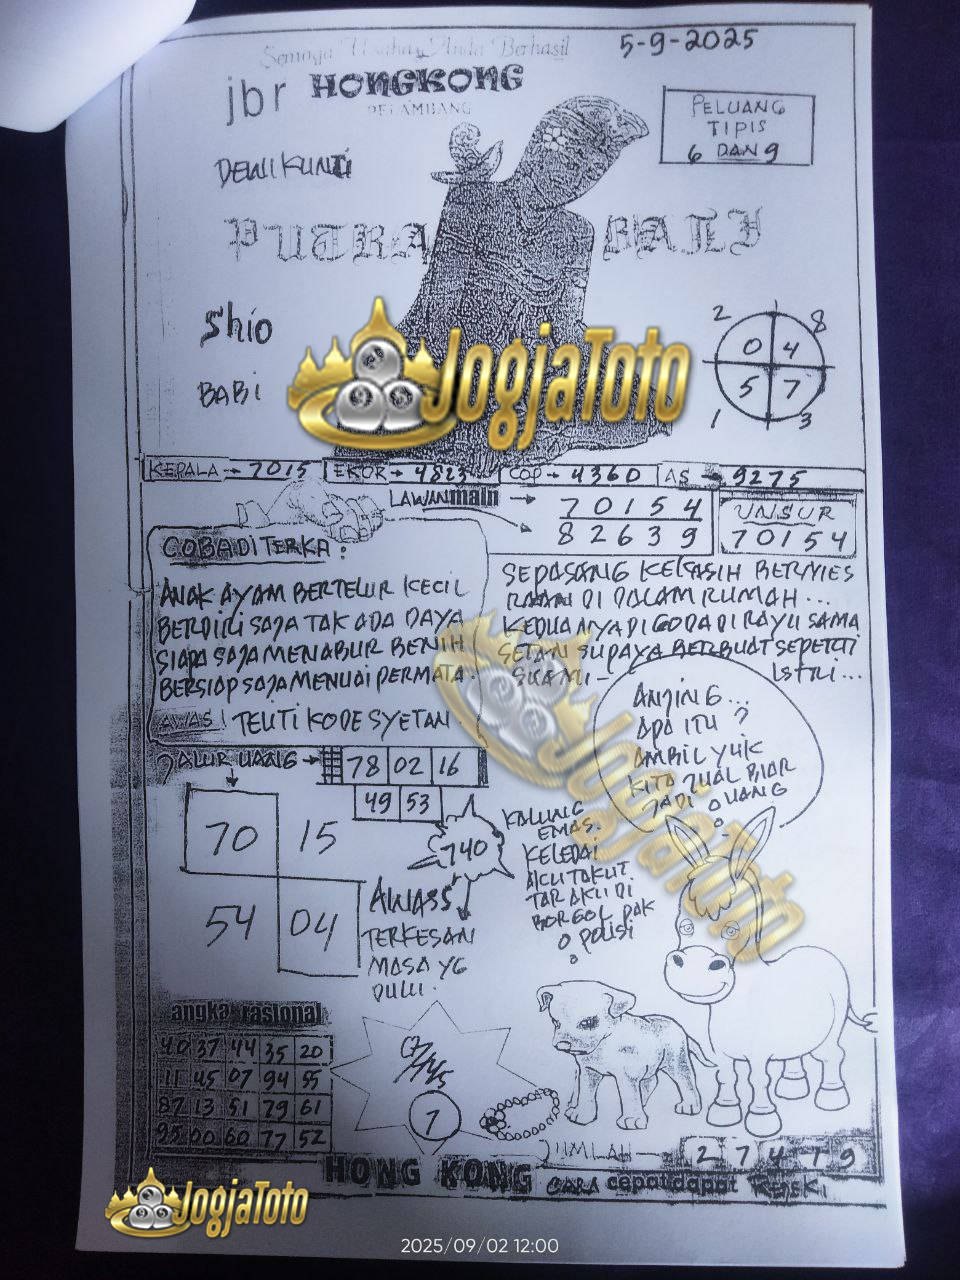 Semoga Usaha Anda Berhasil
5-9-2025
jbr HONGKONG
PELAMBANG
PELUANG
TIPIS
6 DAN 9
DEWI KUNTI
PUTRA BALI
Shio
BABI
2 8
0 4
5 7
1 3
JogjaToto
KEPALA → 7015 EKOR → 4823 COP → 4360 AS → 9275
LAWAN main → 70154
82639
UNSUR
70154
COBA DI TERKA :
ANAK AYAM BERTELUR KECIL
BERDIRI SAJA TAK ADA DAYA
SIAPA SAJA MENABUR BENIH
BERSIAP SAJA MENUAI PERMATA.
AWAS! TELITI KODE SYETAN
SEPASANG KEKASIH BERMES
RAAN DI DALAM RUMAH...
KEDUANYA DI GODA DI RAYU SAMA
SETAN SUPAYA BERBUAT SEPERTI
SUAMI - ISTRI...
JogjaToto
ANJING...
APA ITU ?
AMBIL YUK
KITA JUAL BIAR
JADI UANG
JALUR UANG → 78 02 16
49 53
70 15
54 04
740
AWASS
TERKESAN
MASA YG
DULU.
KALUNG
EMAS.
KELEDAI
AKU TAKUT.
TAR AKU DI
BORGOL PAK
POLISI
angka rasional
40 37 44 35 20
11 45 07 94 55
82 13 51 79 61
95 00 60 77 52
7
JUMLAH → 2 7 4 1 9
HONG KONG CARA cepat dapat
JogjaToto
2025/09/02 12:00